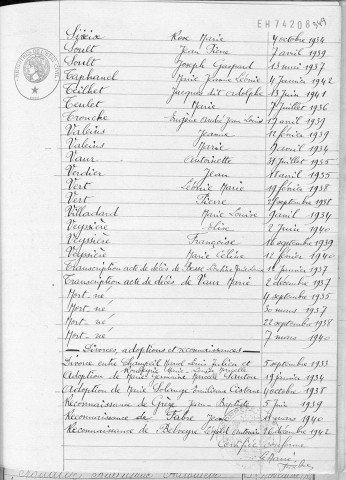 EH 74206
Sireix Rose Marie 4 octobre 1934
Soult Jean Pierre 7 avril 1939
Soult Joseph Gaspard 13 mai 1937
Taphanel Marie Jeanne Léonie 4 janvier 1942
Teilhet Jacques dit Adolphe 13 juin 1941
Teulet Marie 7 juillet 1936
Tronche Eugène André Jean Louis 17 avril 1939
Valeins Jeanne 12 février 1939
Valeins Marie 9 avril 1934
Vaur Antoinette 31 juillet 1935
Verdier Jean 18 avril 1935
Vert Léonie Marie 19 février 1938
Vert Pierre 29 septembre 1938
Villadard Marie Louise 9 avril 1934
Veyssière Elise 2 juin 1940
Veyssière Françoise 16 septembre 1939
Veyssière Marie Céline 12 février 1940
Transcription acte de décès de Besse Louis 11 janvier 1937
Transcription acte de décès de Vaur Marie 2 décembre 1937
Mort-né 4 septembre 1935
Mort-né 30 mars 1937
Mort-né 22 septembre 1938
Mort-né 7 mars 1940
Divorces, adoptions et reconnaissances
Divorce entre Marcel Louis Lucien et 5 septembre 1933
Marie-Louise Marcelle
Adoption de Marie Germaine Marcelle 19 février 1934
Adoption de Marie Solange Emilienne 4 octobre 1937
Reconnaissance de Grèze Jean Baptiste 5 juin 1939
Reconnaissance de Fabre Jean mars 1940
Reconnaissance de Belveyre Antonin 26 décembre 1942
Certifié conforme